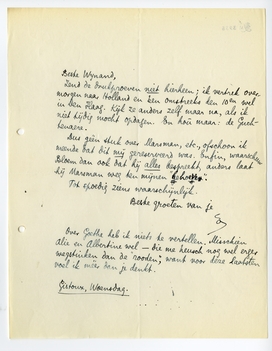 Beste Wynand,
Zend de drukproeven niet hierheen; ik vertrek over-
morgen naar Holland en ben omstreeks den 10en wel
in den Haag. Kijk ze anders zelf maar na, als ik
niet tijdig mocht opdagen. En hou maar: de
Dus géén stuk over Marsman, etc., ofschoon ik
meende dat dit mij gereserveerd was. Enfin, waarschuw
Bloem dan ook dat hij alles bespreekt, anders laat
hij Marsman weg en mijnen
Tot spoedig ziens waarschijnlijk.
Beste groeten van je
E
Over Goethe heb ik niets te vertellen. Misschien
Alie en Albertine wel – die me heusch nog wel erger
dan de rooden; want voor deze laatsten
voel ik méér dan je denkt.
Gistoux, Woensdag.